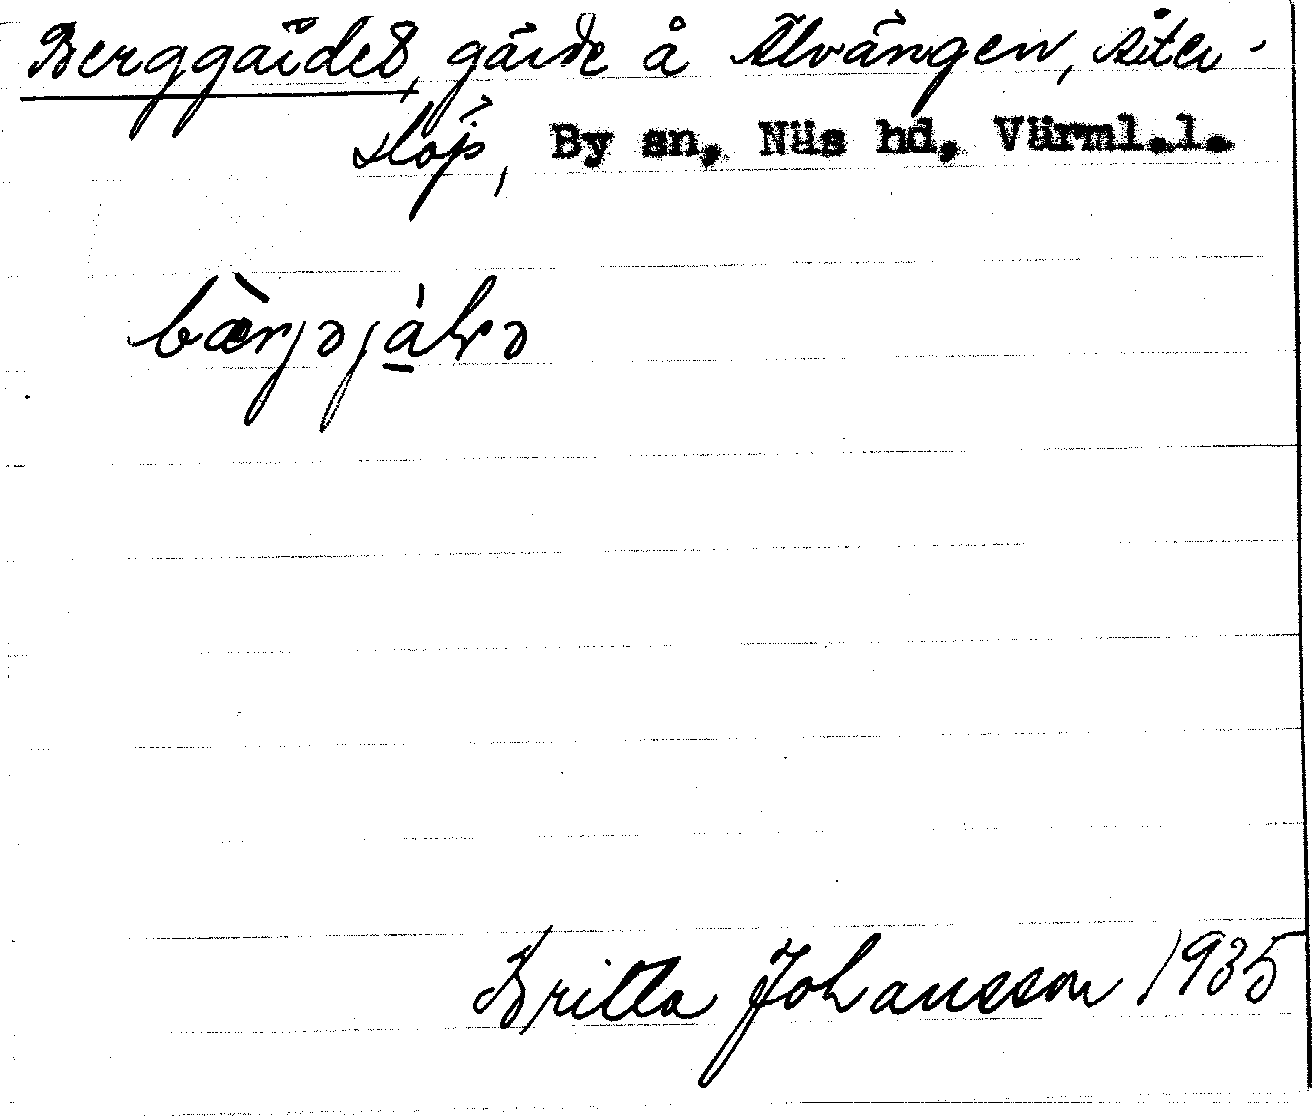 Berggärdet, gärde å Älvängen, Åter-
löp, By sn, Näs hd, Värml.l.
bæ̀rjəjàḷə
Britta Johansson 1935